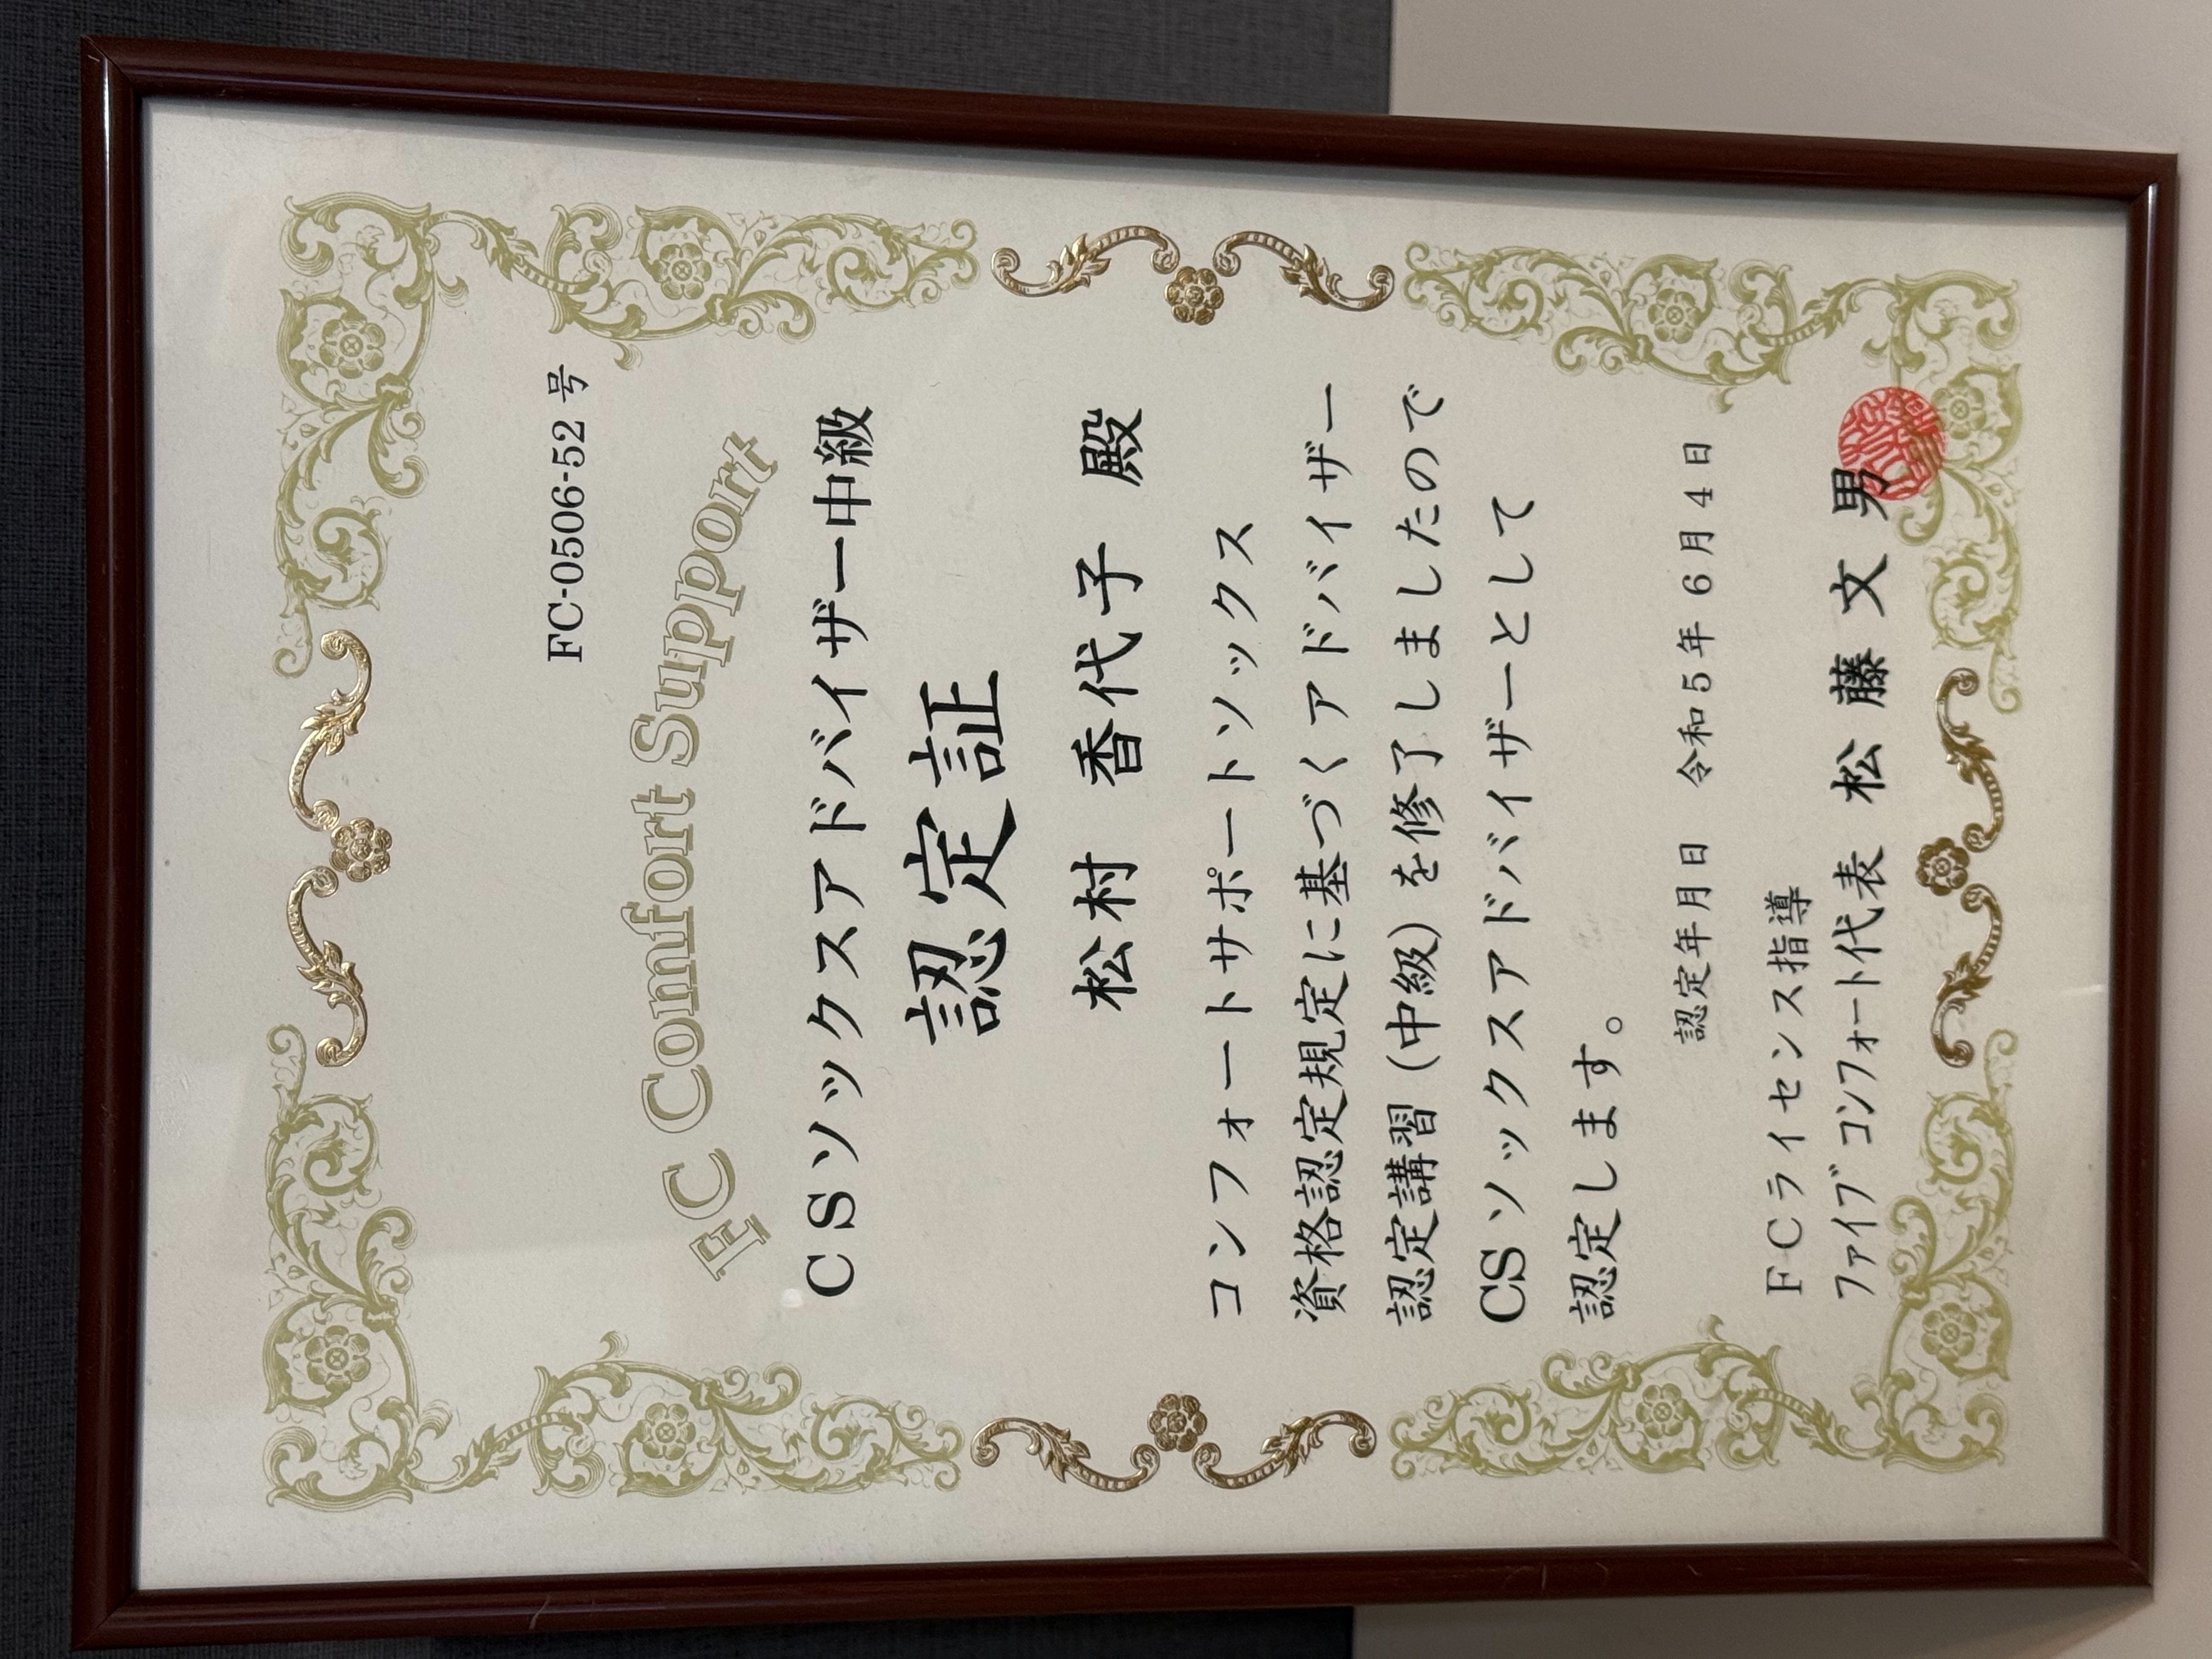 FC-0506-52 号
FC Comfort Support
CSソックスアドバイザー中級
認定証
松村 香代子 殿
コンフォートサポートソックス
資格認定規定に基づくアドバイザー
認定講習(中級)を修了しましたので
CSソックスアドバイザーとして
認定します。
認定年月日 令和5年 6月 4日
FCライセンス指導
ファイブコンフォート代表 松 藤 文 男